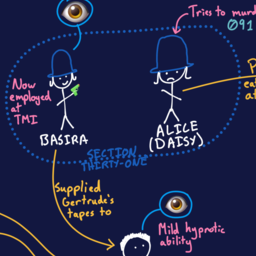 Tries to murd
091
Now
employed
at
TMI
BASIRA
ALICE
(DAISY)
SECTION
THIRTY-ONE
Supplied
Gertrude's
tapes to
Mild hypnotic
ability